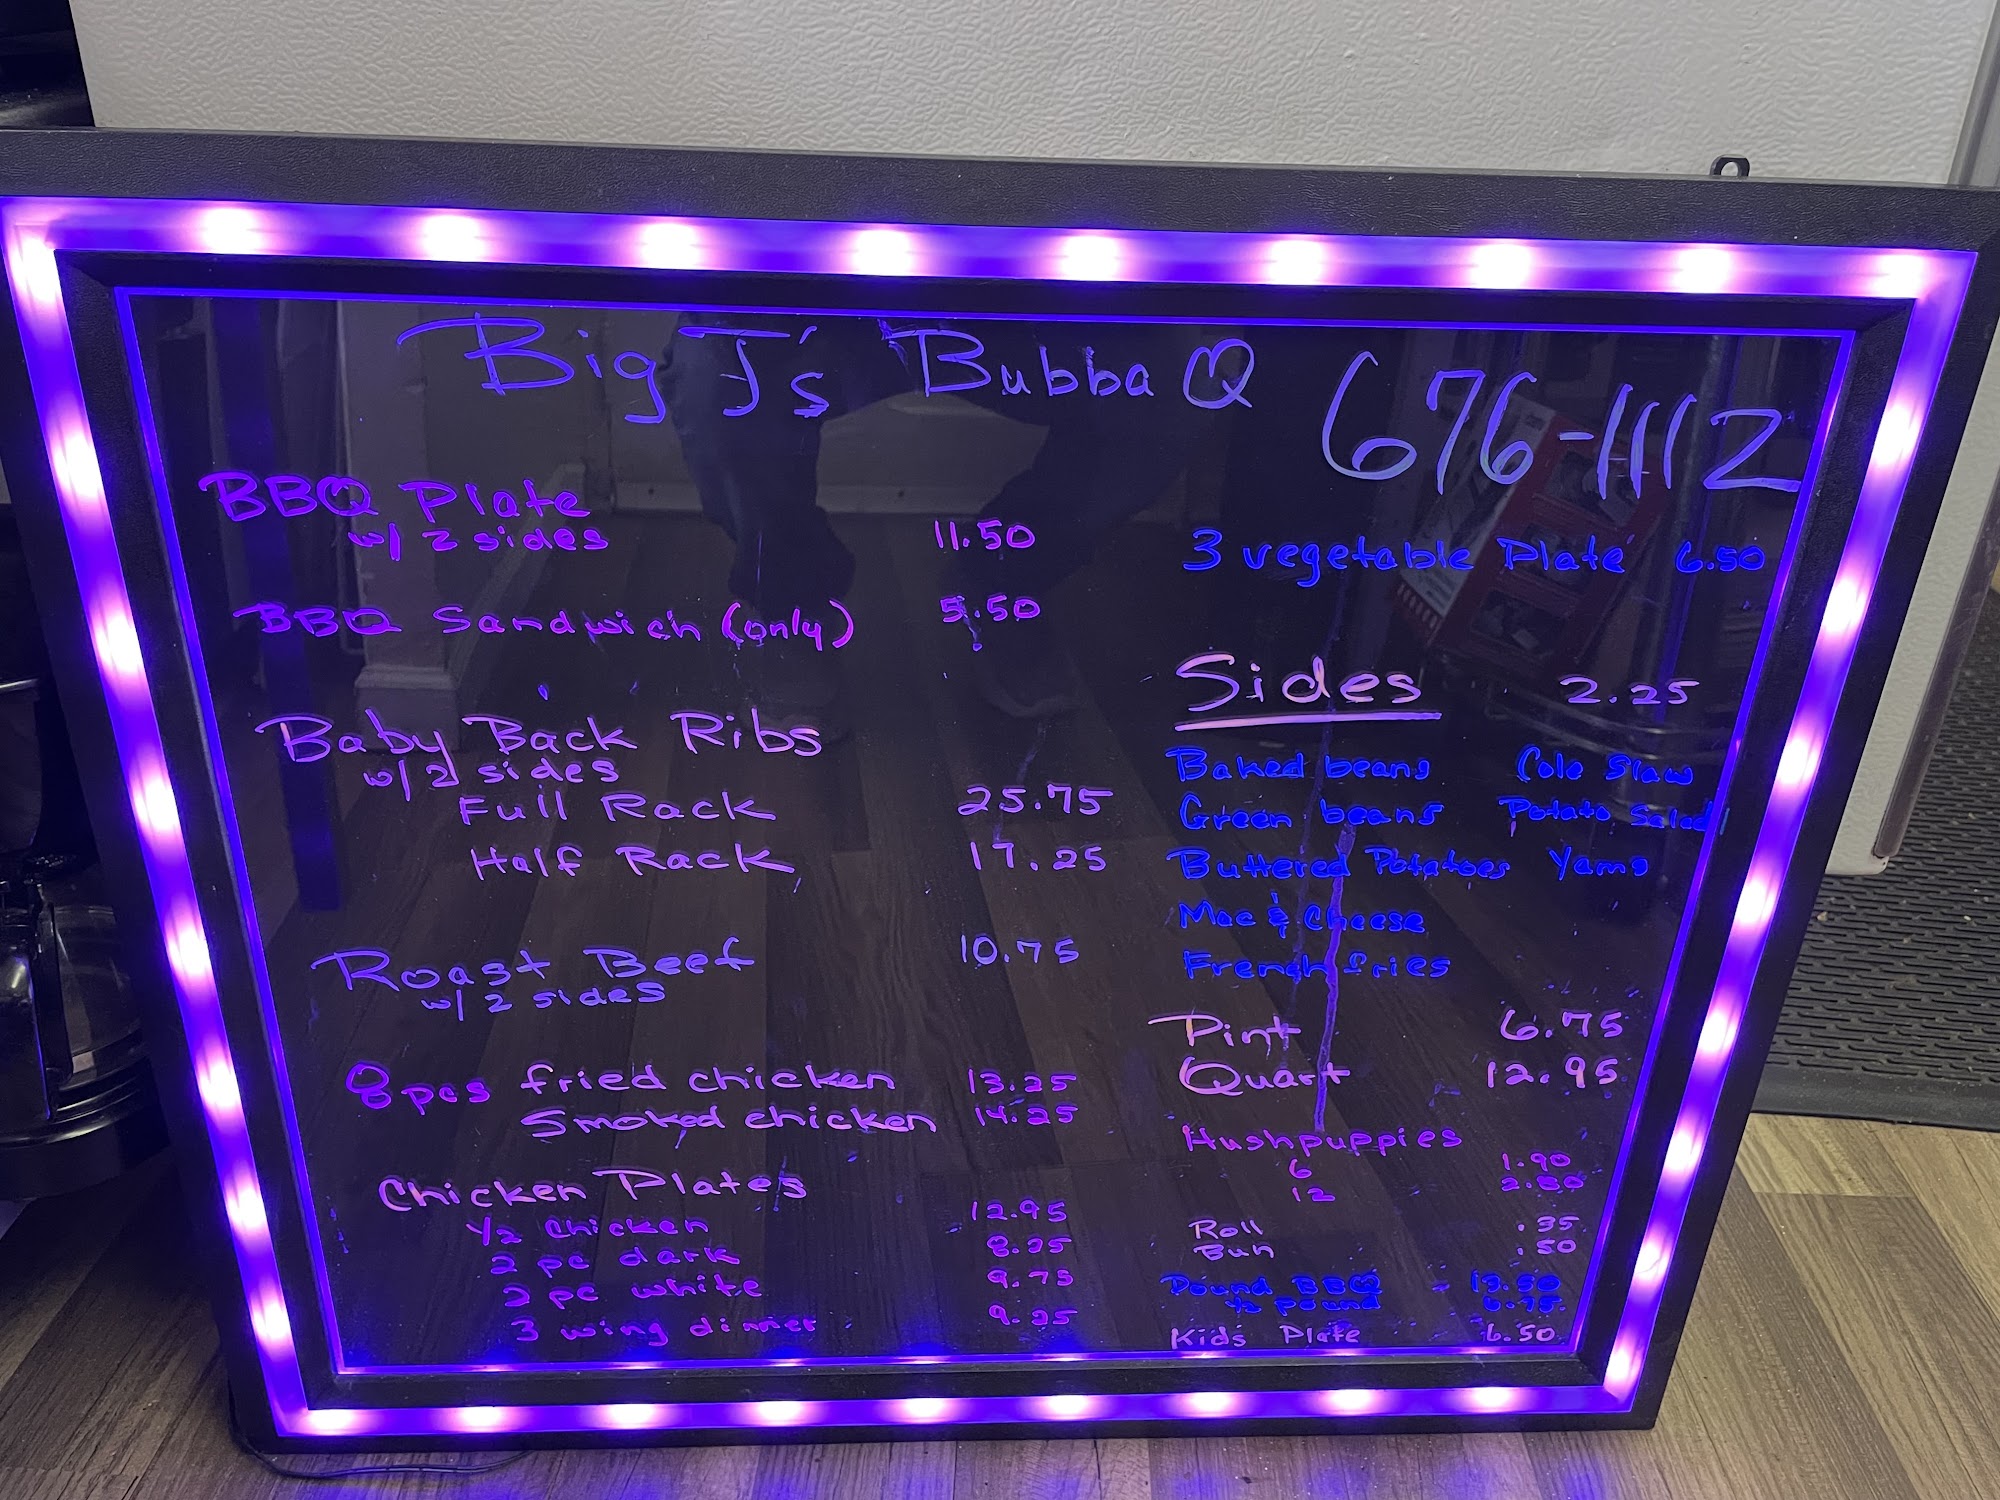 Big J's Bubba Q 676-1112
BBQ Plate
w/ 2 sides 11.50
BBQ Sandwich (only) 5.50
Baby Back Ribs
w/2 sides
Full Rack 25.75
Half Rack 17.25
Roast Beef 10.75
w/ 2 sides
8 pcs fried chicken 13.25
Smoked chicken 14.25
Chicken Plates
1/2 chicken 12.95
2 pc dark 8.25
2 pc white 9.75
3 wing dinner 9.25
3 vegetable Plate 6.50
Sides 2.25
Baked beans Cole Slaw
Green beans Potato Salad
Buttered Potatoes Yams
Mac & Cheese
French fries
Pint 6.75
Quart 12.95
Hushpuppies
6 1.90
12 2.80
Roll .35
Bun .50
Pound BBQ 13.50
1/2 pound 6.75
Kids Plate 6.50